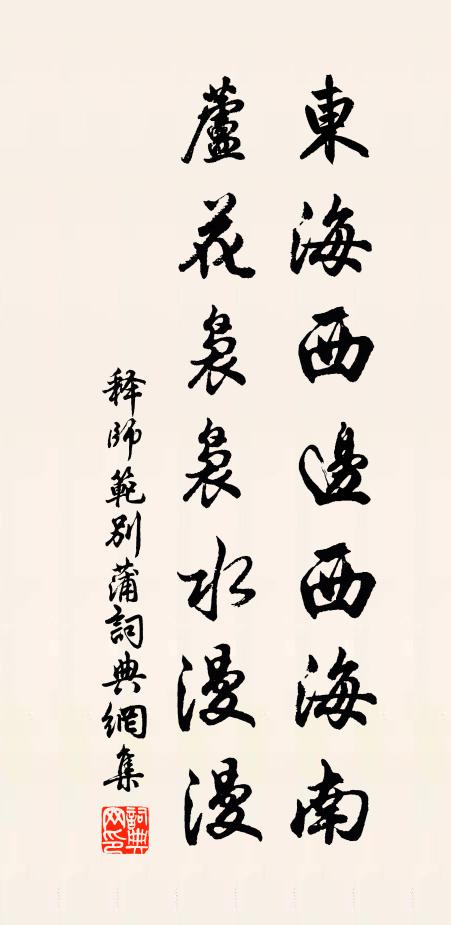 東海西邊西海南
蘆花裊裊水漫漫
释師範别蒲詞典網集
詞典网印